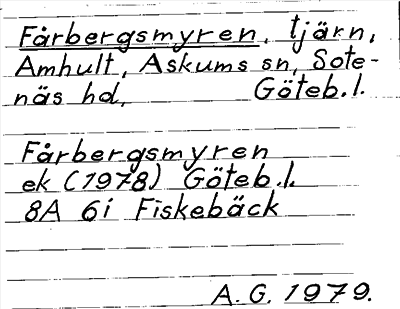 Fårbergsmyren, tjärn,
Amhult, Askums sn, Sote-
näs hd, Göteb. l.
Fårbergsmyren
ek (1978) Göteb. l.
8A 6i Fiskebäck
A. G. 1979.